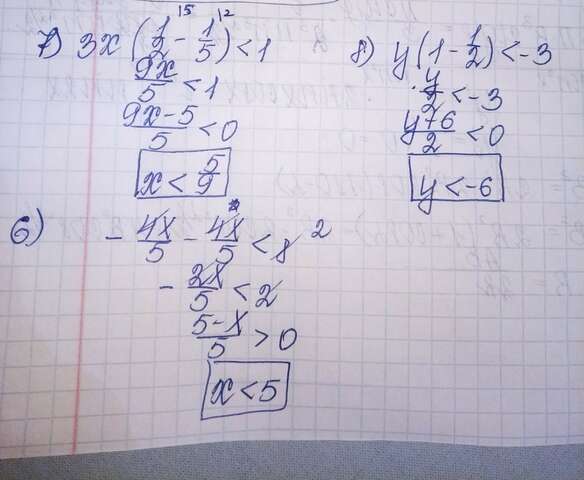 7) 3x(1/2 - 1/5) < 1
15 12
9x/5 < 1
9x-5/5 < 0
x < 5/9
8) y(1 - 1/2) < -3
y/2 < -3
y+6/2 < 0
y < -6
6) - 4x/5 - 4x/5 < 8 2
- 2x/5 < 2
5-x/5 > 0
x < 5